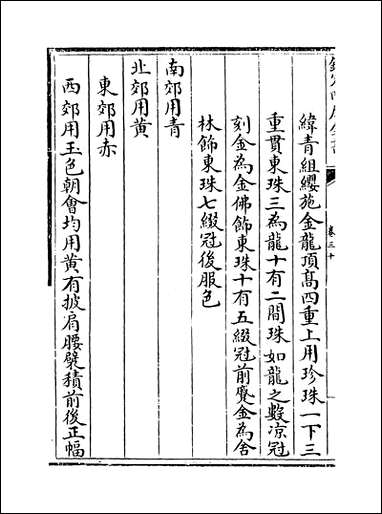 緯青組纓施金龍頂髙四重上用珍珠一下三
重貫東珠三為龍十有二間珠如龍之數凉冠
刻金為金佛飾東珠十有五綴冠前蹙金為舍
林飾東珠七綴冠後服色
南郊用青
北郊用黄
東郊用赤
西郊用玉色朝會均用黄有披肩腰襞積前後正幅
卷三十